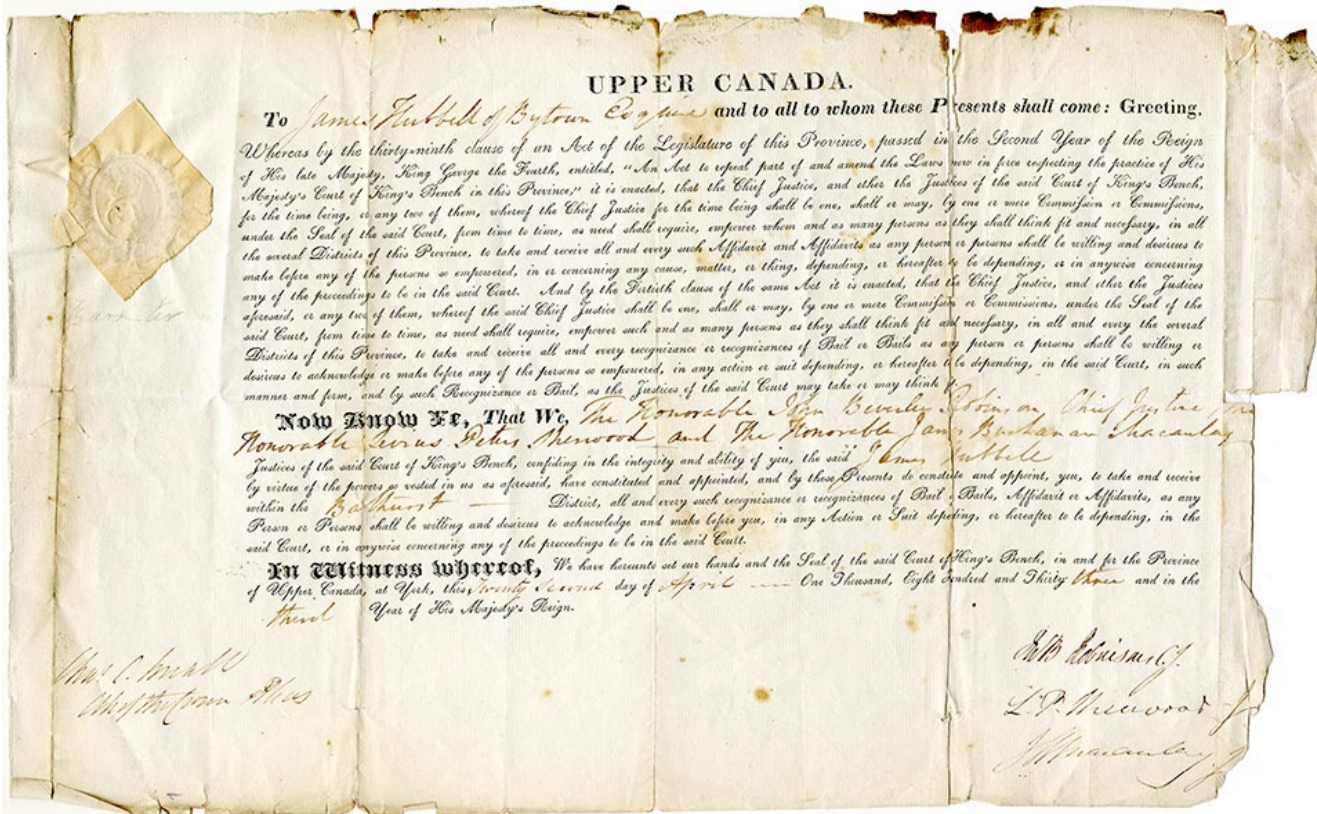 UPPER CANADA.
To James Hubbell of Bytown Esquire and to all to whom these Presents shall come: Greeting.
Whereas by the thirty-ninth clause of an Act of the Legislature of this Province, passed in the Second Year of the Reign
of His late Majesty, King George the Fourth, entitled, "An Act to repeal part of and amend the Laws now in force respecting the practice of His
Majesty's Court of King's Bench in this Province," it is enacted, that the Chief Justice, and other the Justices of the said Court of King's Bench,
for the time being, or any two of them, whereof the Chief Justice for the time being shall be one, shall or may, by one or more Commission or Commissions,
under the Seal of the said Court, from time to time, as need shall require, empower whom and as many persons as they shall think fit and necessary, in all
the several Districts of this Province, to take and receive all and every such Affidavit and Affidavits as any person or persons shall be willing and desirous to
make before any of the persons so empowered, in or concerning any cause, matter, or thing, depending, or hereafter to be depending, or in anywise concerning
any of the proceedings to be in the said Court. And by the Fortieth clause of the same Act it is enacted, that the Chief Justice, and other the Justices
aforesaid, or any two of them, whereof the said Chief Justice shall be one, shall or may, by one or more Commission or Commissions, under the Seal of the
said Court, from time to time, as need shall require, empower such and as many persons as they shall think fit and necessary, in all and every the several
Districts of this Province, to take and receive all and every recognizance or recognizances of Bail or Bails as any person or persons shall be willing or
desirous to acknowledge or make before any of the persons so empowered, in any action or suit depending, or hereafter to be depending, in the said Court, in such
manner and form, and by such Recognizance or Bail, as the Justices of the said Court may take or may think fit.
Now Know Ye, That We, The Honorable John Beverley Robinson, Chief Justice, The
Honorable Levius Peters Sherwood and The Honorable James Buchanan Macaulay
Justices of the said Court of King's Bench, confiding in the integrity and ability of you, the said James Hubbell
by virtue of the powers so vested in us as aforesaid, have constituted and appointed, and by these Presents do constitute and appoint, you, to take and receive
within the Bathurst — District, all and every such recognizance or recognizances of Bail or Bails, Affidavit or Affidavits, as any
Person or Persons shall be willing and desirous to acknowledge and make before you, in any Action or Suit depending, or hereafter to be depending, in the
said Court, or in anywise concerning any of the proceedings to be in the said Court.
In Witness whereof, We have hereunto set our hands and the Seal of the said Court of King's Bench, in and for the Province
of Upper Canada, at York, this Twenty Second day of April — One Thousand, Eight Hundred and Thirty three and in the
third Year of His Majesty's Reign.
Chas C. Small
Clk of the Crown & Pleas
Jn B Robinson C.J.
L. P. Sherwood J
J B Macaulay J